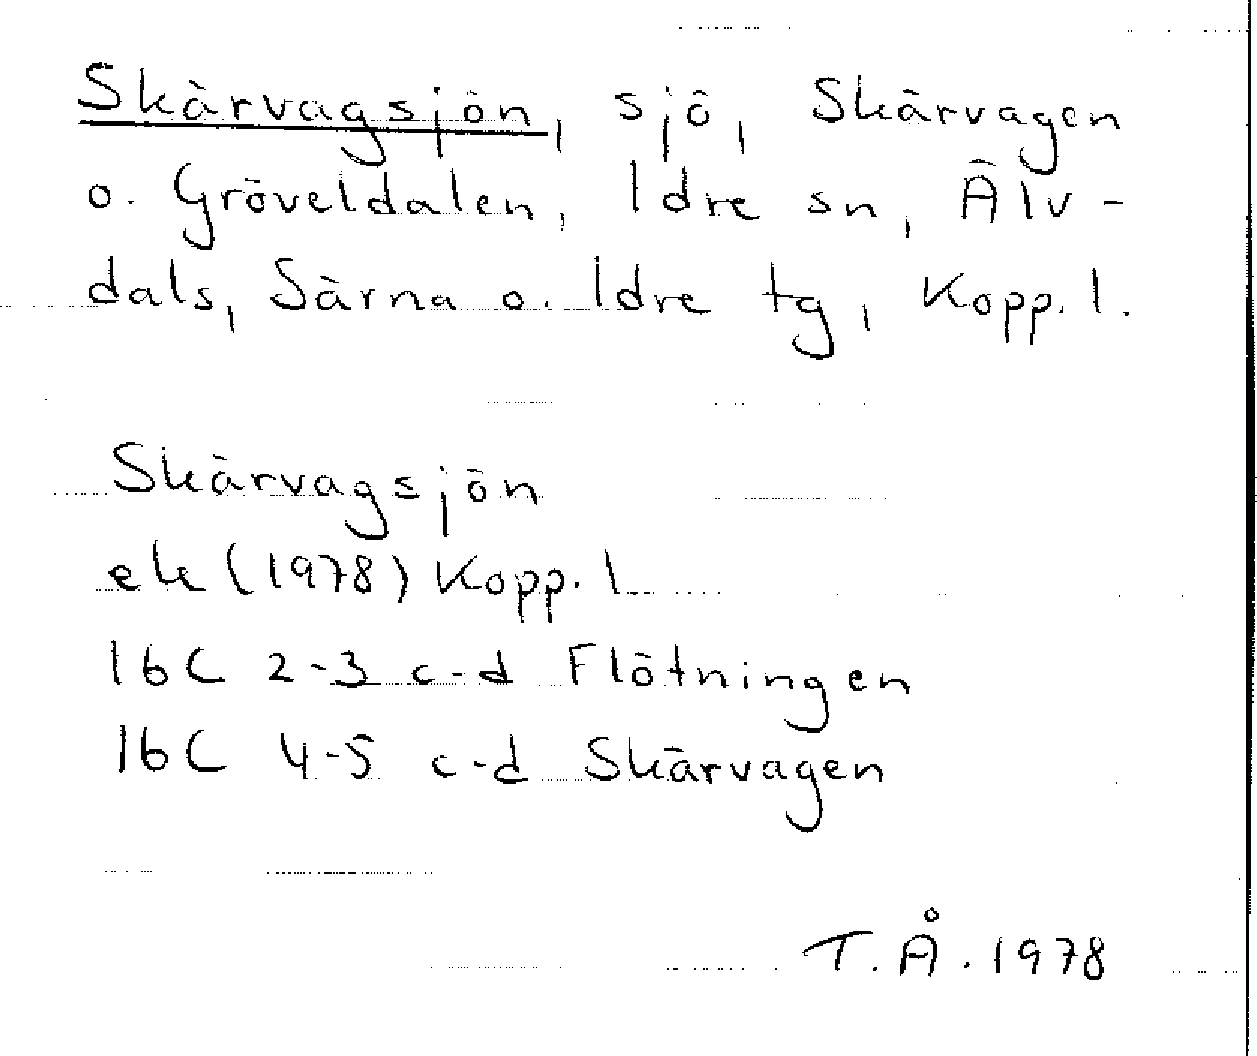 Skärvagsjön, sjö, Skärvagen
o. Gröveldalen, Idre sn, Älv-
dals, Särna o. Idre tg, Kopp. l.
Skärvagsjön
ek (1978) Kopp. l
16C 2-3 c-d Flötningen
16C 4-5 c-d Skärvagen
T.Å. 1978